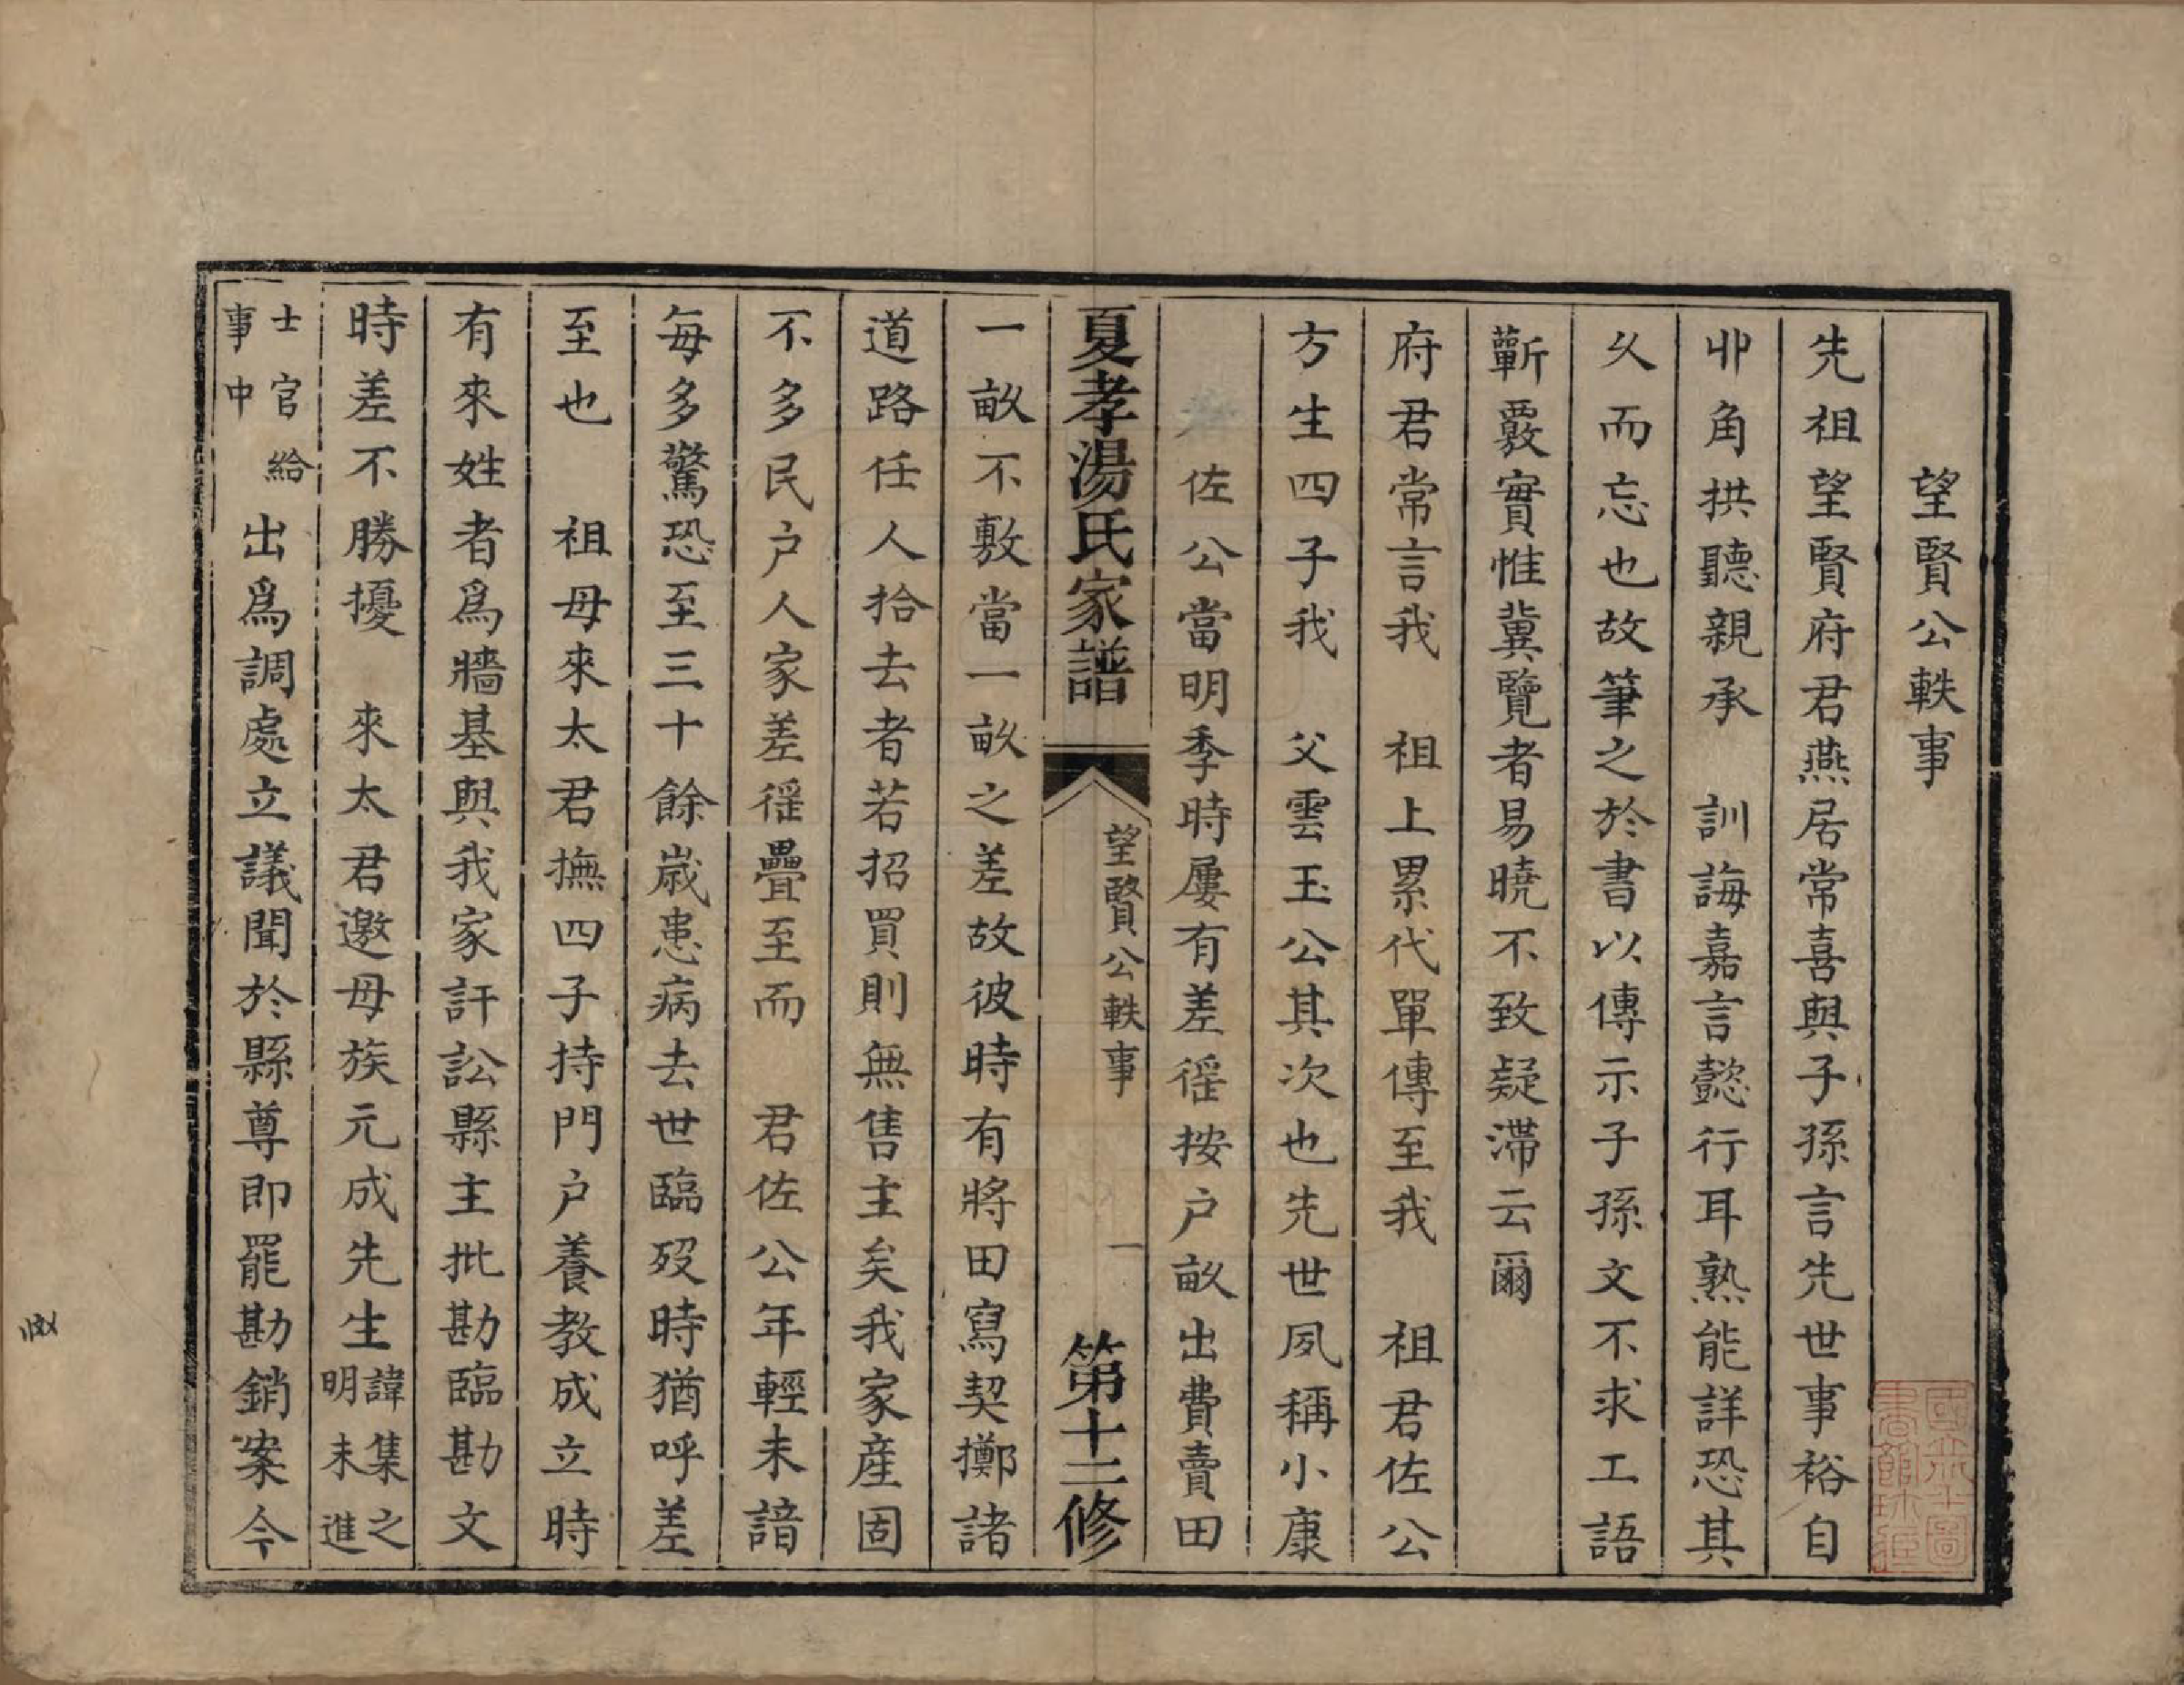 望賢公軼事
先祖望賢府君燕居常喜與子孫言先世事裕自
丱角拱聽親承　訓誨嘉言懿行耳熟能詳恐其
久而忘也故筆之於書以傳示子孫文不求工語
蘄覈實惟冀覽者易曉不致疑滯云爾
府君常言我　祖上累代單傳至我　祖君佐公
方生四子我　父雲玉公其次也先世夙稱小康
佐公當明季時屢有差徭按户畝出費賣田
夏孝湯氏家譜
望賢公軼事
一
第十二修
一畝不敷當一畝之差故彼時有將田寫契擲諸
道路任人拾去者若招買則無售主矣我家産固
不多民户人家差徭疊至而　君佐公年輕未諳
每多驚恐至三十餘歲患病去世臨殁時猶呼差
至也　祖母來太君撫四子持門户養教成立時
有來姓者爲牆基與我家訐訟縣主批勘臨勘文
時差不勝擾　來太君邀母族元成先生諱集之明末進
士官給事中出爲調處立議聞於縣尊即罷勘銷案今